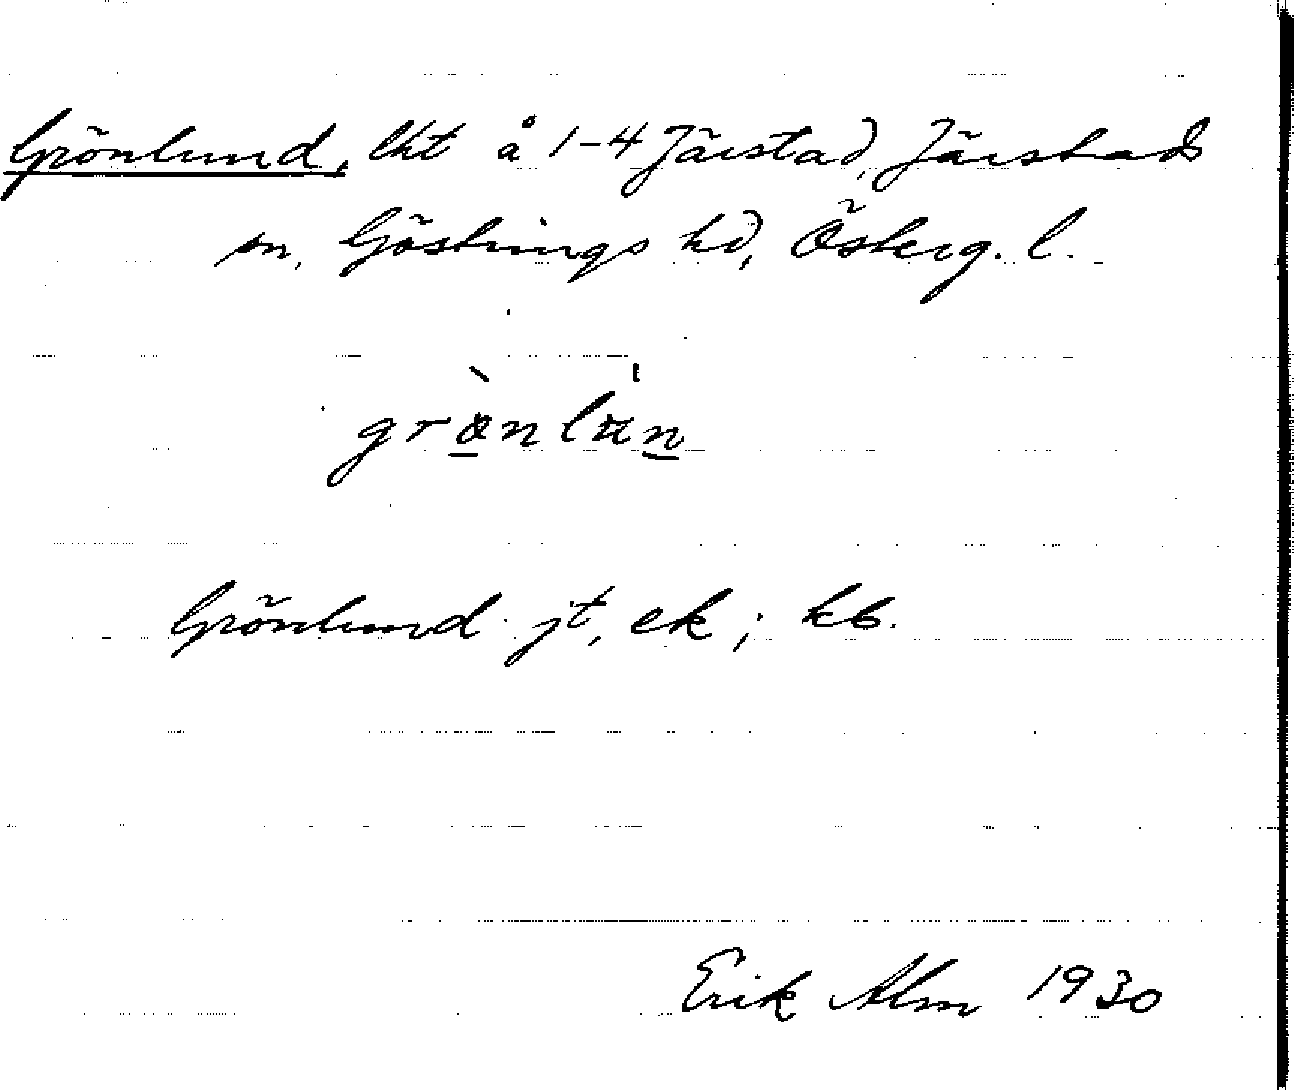 Grönlund, lht å 1-4 Järstad, Järstads
sn, Göstrings hd, Österg. l.
grònlu̍n
Grönlund jt, ek; kb.
Erik Alm 1930